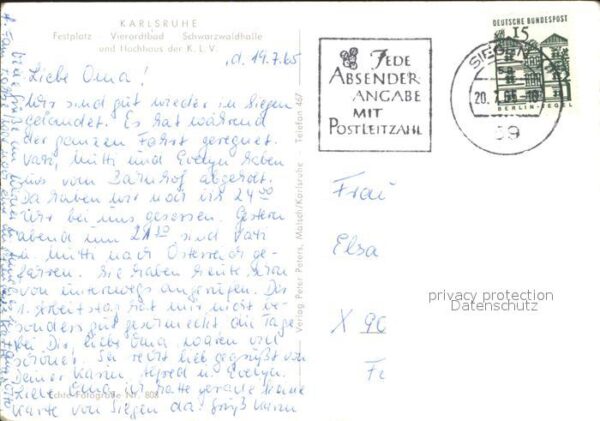 KARLSRUHE
Festplatz - Vierordtbad Schwarzwaldhalle
und Hochhaus der K.L.V.
d. 19.7.65
Liebe Oma!
Wir sind gut wieder in Siegen
gelandet. Es hat während
der ganzen Fahrt geregnet.
Vati, Mutti und Evelyn haben
uns vom Bahnhof abgeholt.
Da haben wir noch bis 24 00
Uhr bei uns gesessen. Gestern
abend um 21 30 sind Vati
u. Mutti nach Österreich ge-
fahren. Sie haben heute schon
von unterwegs angerufen. Der
1. Arbeitstag hat mir nicht be-
sonders gut geschmeckt die Tage
bei Dir, liebe Oma waren viel
schöner. Sei recht lieb gegrüßt von
Deiner Karin Alfred u. Evelyn.
Liebe Oma ich hatte gerade keine
Karte von Siegen da! Gruß Karin
Echte Fotografie Nr. 808
Verlag Peter Peters, Malsch/Karlsruhe - Telefon 467
JEDE
ABSENDER-
ANGABE
MIT
POSTLEITZAHL
SIEGEN
20.7.65-18
59
DEUTSCHE BUNDESPOST
15
BERLIN-TEGEL
Frau
Elsa
X 90
privacy protection
Datenschutz